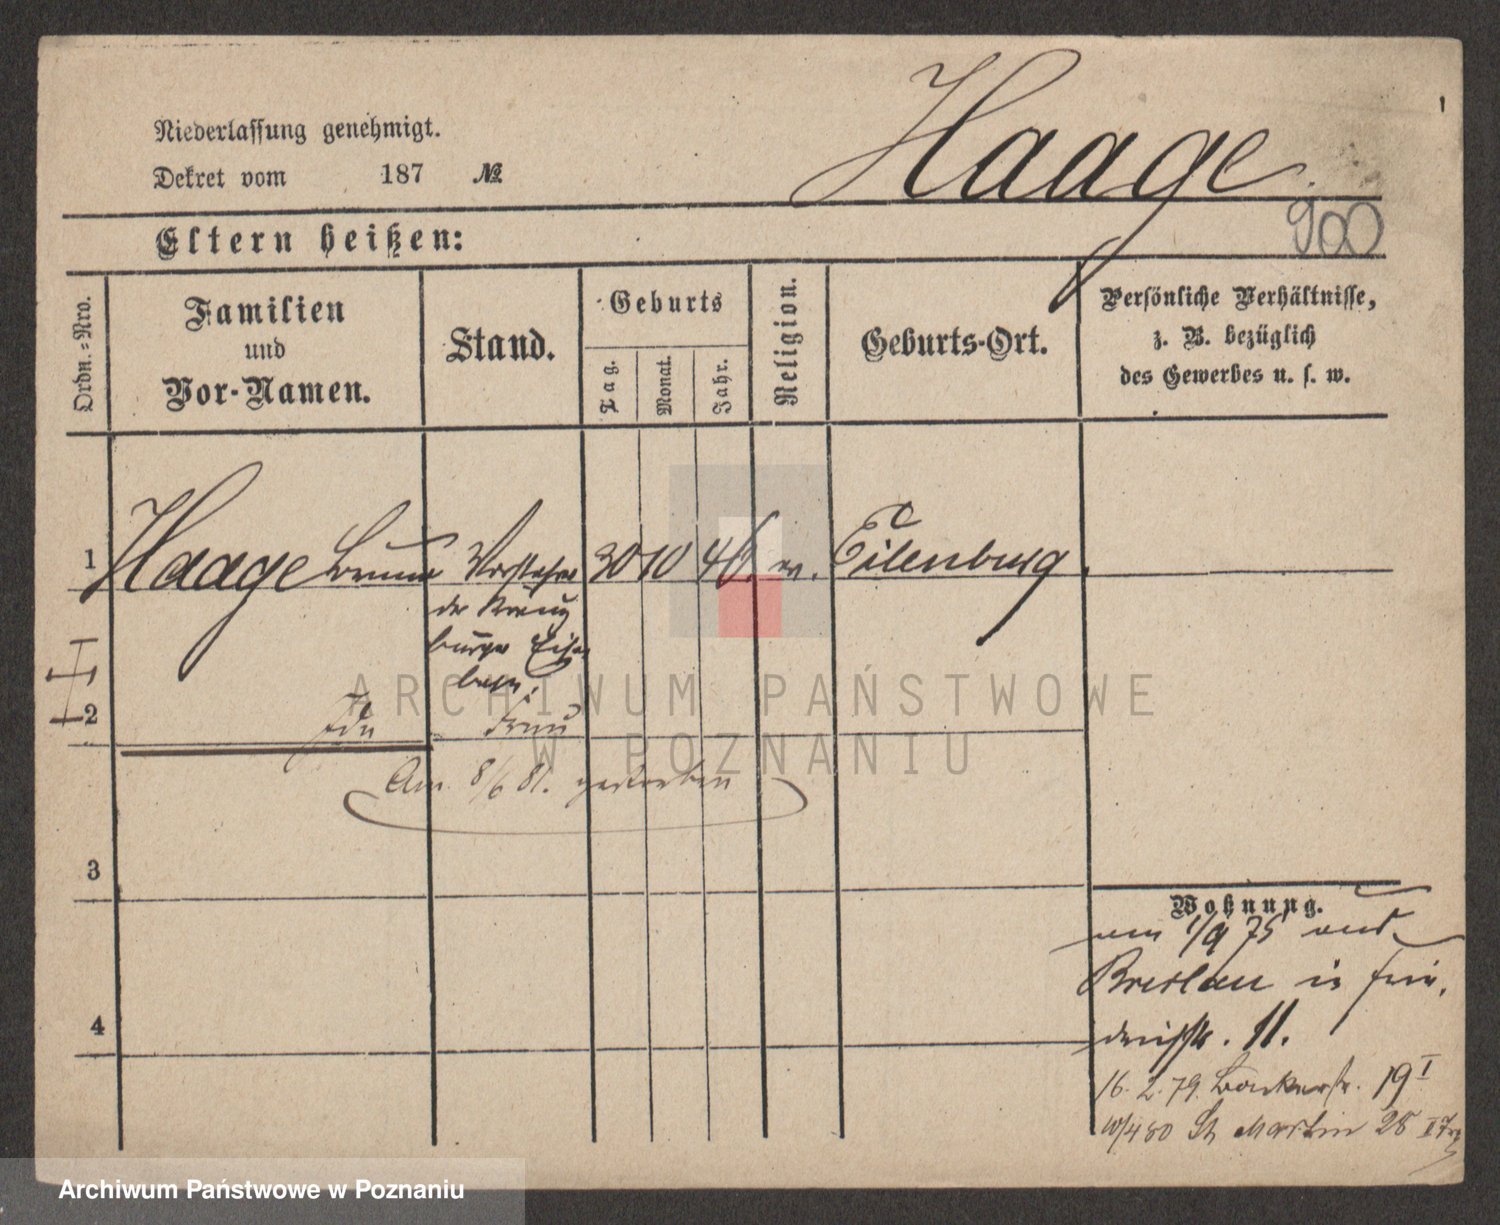 Haage
Niederlassung genehmigt.
Dekret vom 187 №
900
Eltern heißen:
Ordn.-Nro.
Familien
und
Vor-Namen.
Stand.
Geburts
Tag.
Monat.
Jahr.
Religion.
Geburts-Ort.
Persönliche Verhältnisse,
z. B. bezüglich
des Gewerbes u. s. w.
1 Haage Bruno Vorsteher 30 10 46. ev. Eilenburg.
der Kreuz
burger Eisen
bahn.
2 Ida Frau
Am 8/6 81. gestorben
3
4
Wohnung.
am 1/9 75 aus
Breslau in Frie,
drichstr. 11.
16. 2. 79. Bäckerstr. 19 I
10/4 80 St Martin 28 II
ARCHIWUM PAŃSTWOWE
W POZNANIU
Archiwum Państwowe w Poznaniu